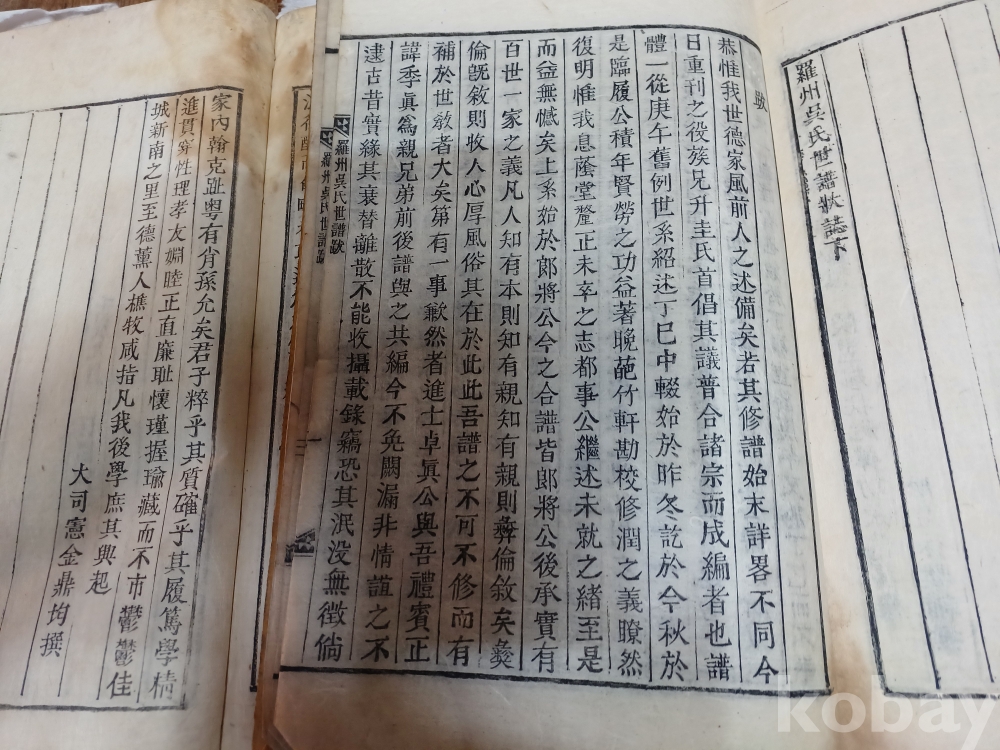 羅州吳氏世譜狀誌下
跋
恭惟我世德家風前人之述備矣若其修譜始末詳畧不同今
日重刊之役族兄升圭氏首倡其議普合諸宗而成編者也譜
體一從庚午舊例世系紹述丁巳中輟始於昨冬訖於今秋於
是臨履公積年賢勞之功益著晚葩竹軒勘校修潤之義瞭然
復明惟我息蔭堂釐正未卒之志都事公繼述未就之緒至是
而益無憾矣上系始於郎將公今之合譜皆郎將公後承實有
百世一家之義凡人知有本則知有親知有親則彝倫敘矣彝
倫旣敘則收人心厚風俗其在於此此吾譜之不可不修而有
補於世敎者大矣第有一事歉然者進士卓眞公與吾禮賓正
諱季眞爲親兄弟前後譜與之共編今不免闕漏非情誼之不
逮古昔實緣其衰替離散不能收攝載錄竊恐其泯沒無徵倘
羅州吳氏世譜跋
羅州吳氏世譜
家內翰克趾粤有肖孫允矣君子粹乎其質確乎其履篤學精
進貫穿性理孝友婣睦正直廉耻懷瑾握瑜藏而不市鬱鬱佳
城新南之里至德薰人樵牧咸指凡我後學庶其興起
大司憲金鼎均撰
kobay